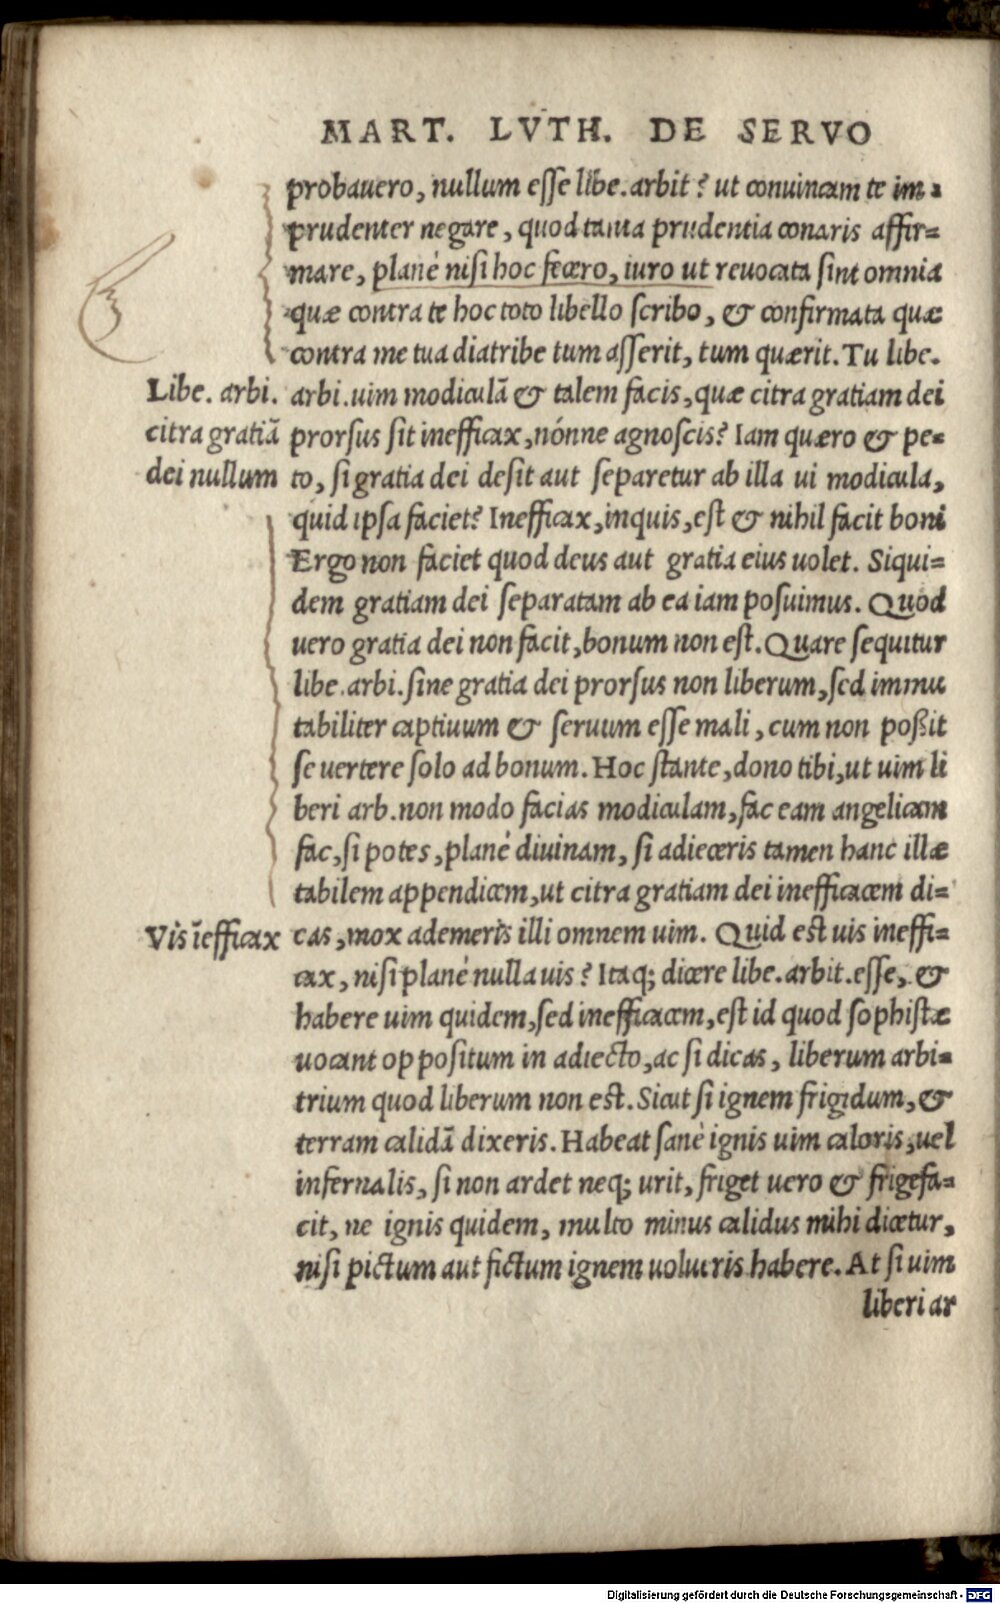 MART. LVTH. DE SERVO
probauero, nullum esse libe.arbit? ut conuincam te im-
prudenter negare, quod tanta prudentia conaris affir=
mare, planè nisi hoc fecero, iuro ut reuocata sint omnia
quæ contra te hoc toto libello scribo, & confirmata quæ
contra me tua diatribe tum asserit, tum quærit. Tu libe.
Libe. arbi.
citra gratiã
dei nullum
arbi.uim modiculã & talem facis, quæ citra gratiam dei
prorsus sit inefficax, nónne agnoscis? Iam quæro & pe=
to, si gratia dei desit aut separetur ab illa ui modicula,
quid ipsa faciet? Inefficax, inquis, est & nihil facit boni
Ergo non faciet quod deus aut gratia eius uolet. Siqui=
dem gratiam dei separatam ab ea iam posuimus. Quod
uero gratia dei non facit, bonum non est. Quare sequitur
libe.arbi.sine gratia dei prorsus non liberum, sed immu
tabiliter captiuum & seruum esse mali, cum non poßit
se uertere solo ad bonum. Hoc stante, dono tibi, ut uim li
beri arb.non modo facias modiculam, fac eam angelicam
fac, si potes, planè diuinam, si adieceris tamen hanc illæ
tabilem appendicem, ut citra gratiam dei inefficacem di=
Vis ĩefficax
cas, mox ademeris illi omnem uim. Quid est uis ineffi=
cax, nisi planè nulla uis? Itaq; dicere libe.arbit.esse, &
habere uim quidem, sed inefficacem, est id quod sophistæ
uocant oppositum in adiecto, ac si dicas, liberum arbi=
trium quod liberum non est. Sicut si ignem frigidum, &
terram calidã dixeris. Habeat sanè ignis uim caloris, uel
infernalis, si non ardet neq; urit, friget uero & frigefa=
cit, ne ignis quidem, multo minus calidus mihi dicetur,
nisi pictum aut fictum ignem uolueris habere. At si uim
liberi ar
Digitalisierung gefördert durch die Deutsche Forschungsgemeinschaft - DFG